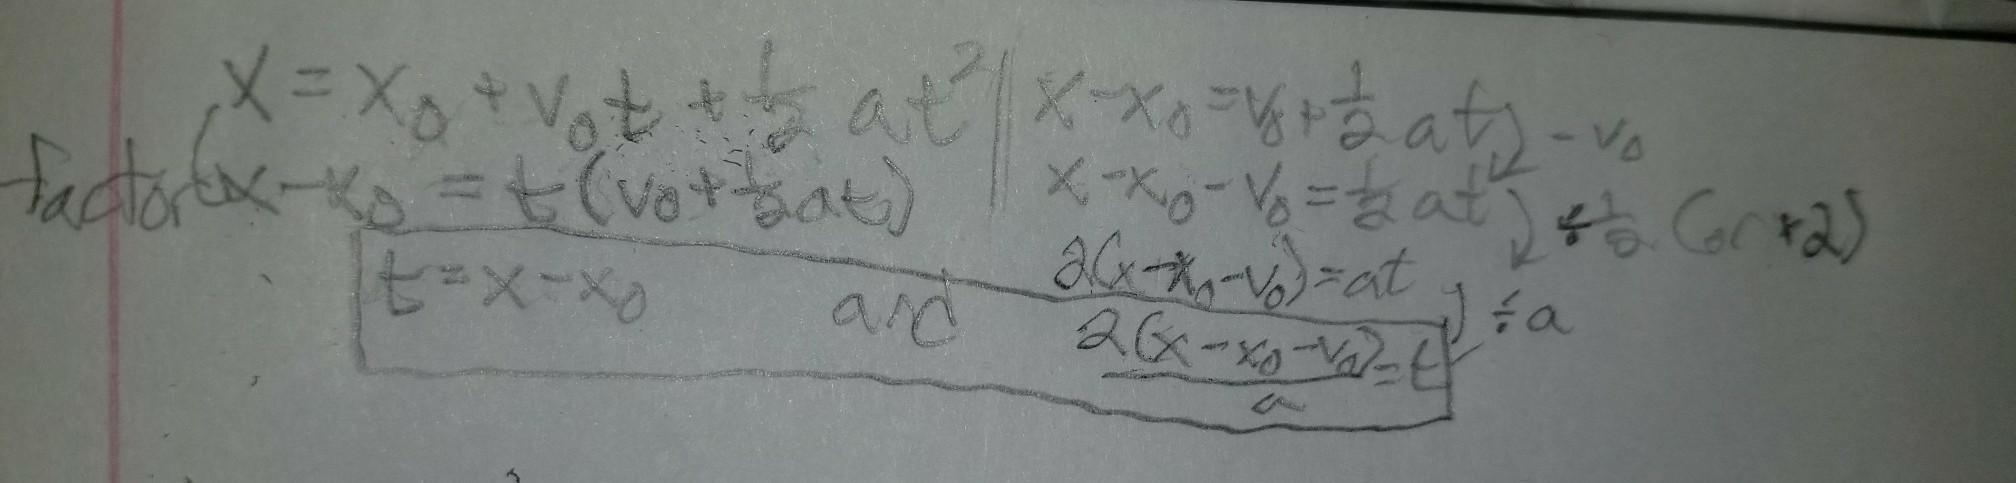 x = x₀ + v₀t + ½ at²
factor x - x₀ = t(v₀ + ½at)
t = x - x₀ and
x - x₀ = v₀ + ½ at - v₀
x - x₀ - v₀ = ½ at ÷ ½ (or *2)
2(x - x₀ - v₀) = at ÷ a
2(x - x₀ - v₀)/a = t